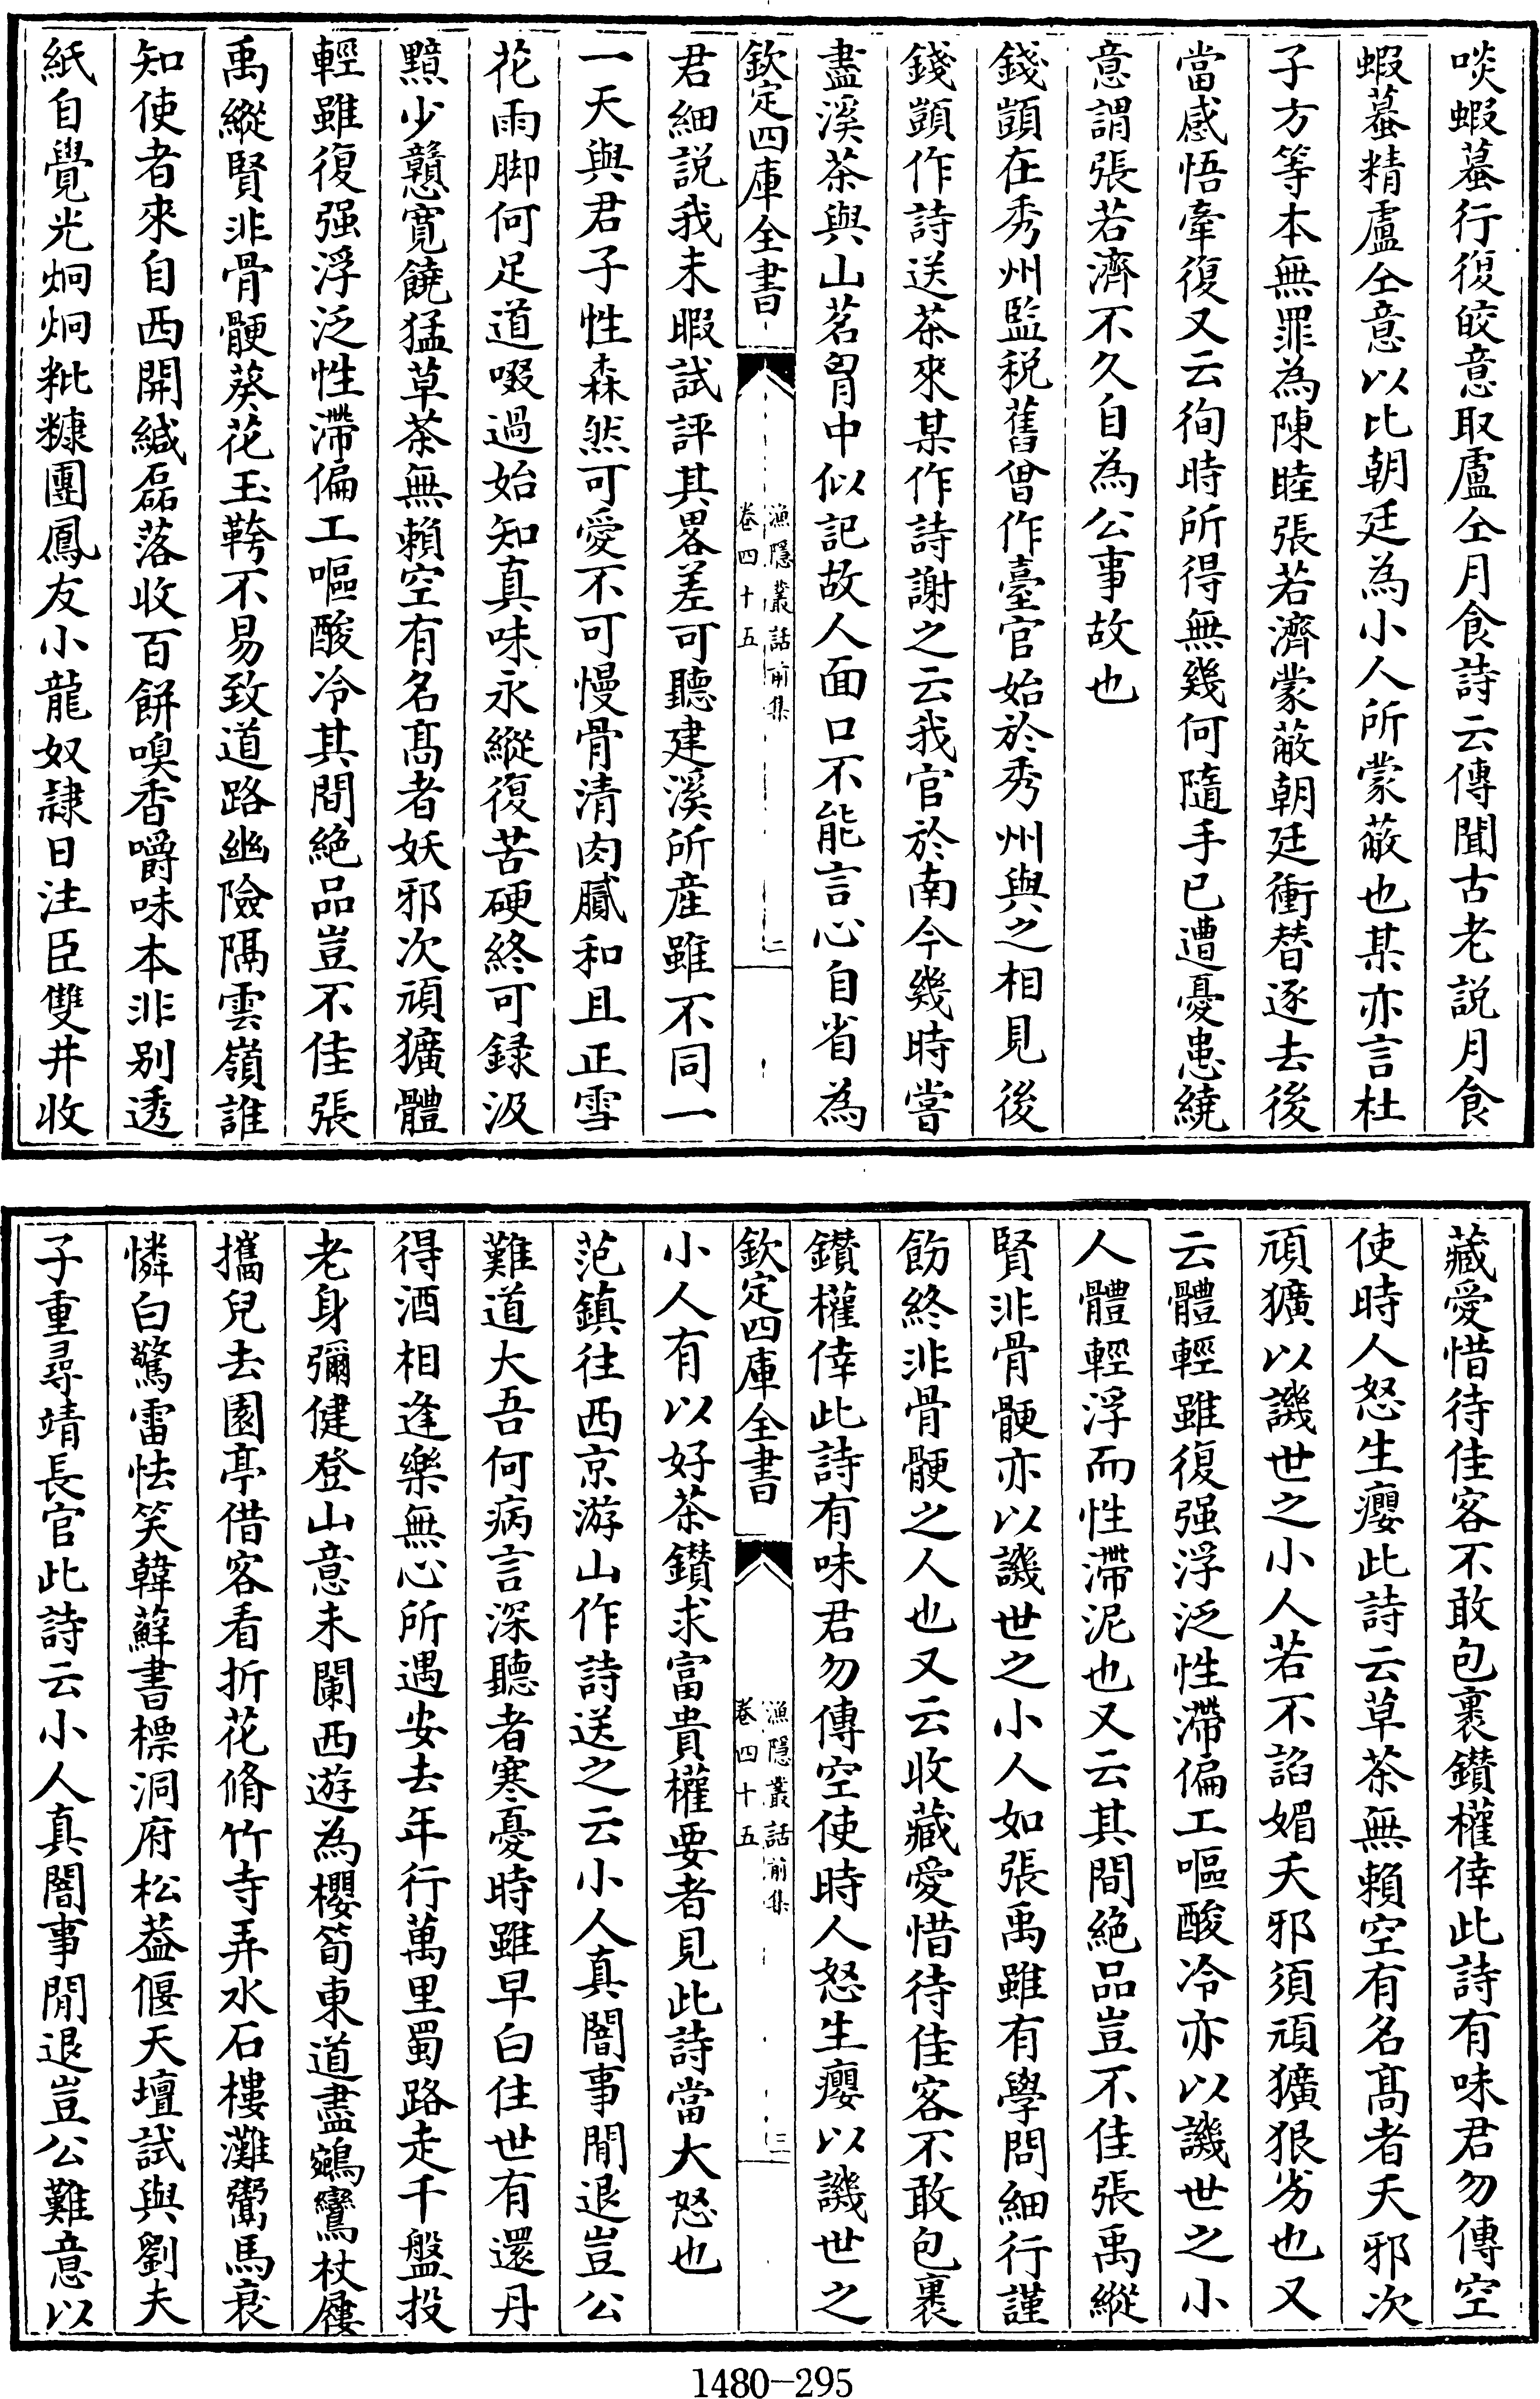 啖蝦蟇行復皎意取盧仝月食詩云傳聞古老説月食
蝦蟇精盧仝意以比朝廷為小人所蒙蔽也某亦言杜
子方等本無罪為陳睦張若濟蒙蔽朝廷衝替逐去後
當感悟牽復又云徇時所得無幾何隨手已遭憂患繞
意謂張若濟不久自為公事故也
錢顗在秀州監税舊曾作臺官始於秀州與之相見後
錢顗作詩送茶來某作詩謝之云我官於南今幾時嘗
盡溪茶與山茗胷中似記故人面口不能言心自省為
欽定四庫全書
漁隱叢話前集
卷四十五
二
君細説我未暇試評其畧差可聽建溪所産雖不同一
一天與君子性森然可愛不可慢骨清肉膩和且正雪
花雨脚何足道啜過始知真味永縱復苦硬終可録汲
黯少戇寛饒猛草茶無賴空有名髙者妖邪次頑獷體
輕雖復强浮泛性滯偏工嘔酸冷其間絶品豈不佳張
禹縱賢非骨骾葵花玉䩞不易致道路幽險隔雲嶺誰
知使者來自西開緘磊落收百餅嗅香嚼味本非别透
紙自覺光炯炯粃糠團鳳友小龍奴隷日注臣雙井收
藏愛惜待佳客不敢包裹鑚權倖此詩有味君勿傳空
使時人怒生癭此詩云草茶無賴空有名髙者夭邪次
頑獷以譏世之小人若不諂媚夭邪須頑獷狠劣也又
云體輕雖復强浮泛性滯偏工嘔酸冷亦以譏世之小
人體輕浮而性滯泥也又云其間絶品豈不佳張禹縱
賢非骨骾亦以譏世之小人如張禹雖有學問細行謹
飭終非骨骾之人也又云收藏愛惜待佳客不敢包裹
鑚權倖此詩有味君勿傳空使時人怒生癭以譏世之
欽定四庫全書
漁隱叢話前集
卷四十五
三
小人有以好茶鑚求富貴權要者見此詩當大怒也
范鎮往西京游山作詩送之云小人真闇事閒退豈公
難道大吾何病言深聽者寒憂時雖早白住世有還丹
得酒相逢樂無心所遇安去年行萬里蜀路走千盤投
老身彌健登山意未闌西遊為櫻筍東道盡鵷鸞杖屨
攜兒去園亭借客看折花脩竹寺弄水石樓灘鬻馬衰
憐白驚雷怯笑韓蘚書標洞府松葢偃天壇試與劉夫
子重尋靖長官此詩云小人真闇事閒退豈公難意以
1480-295